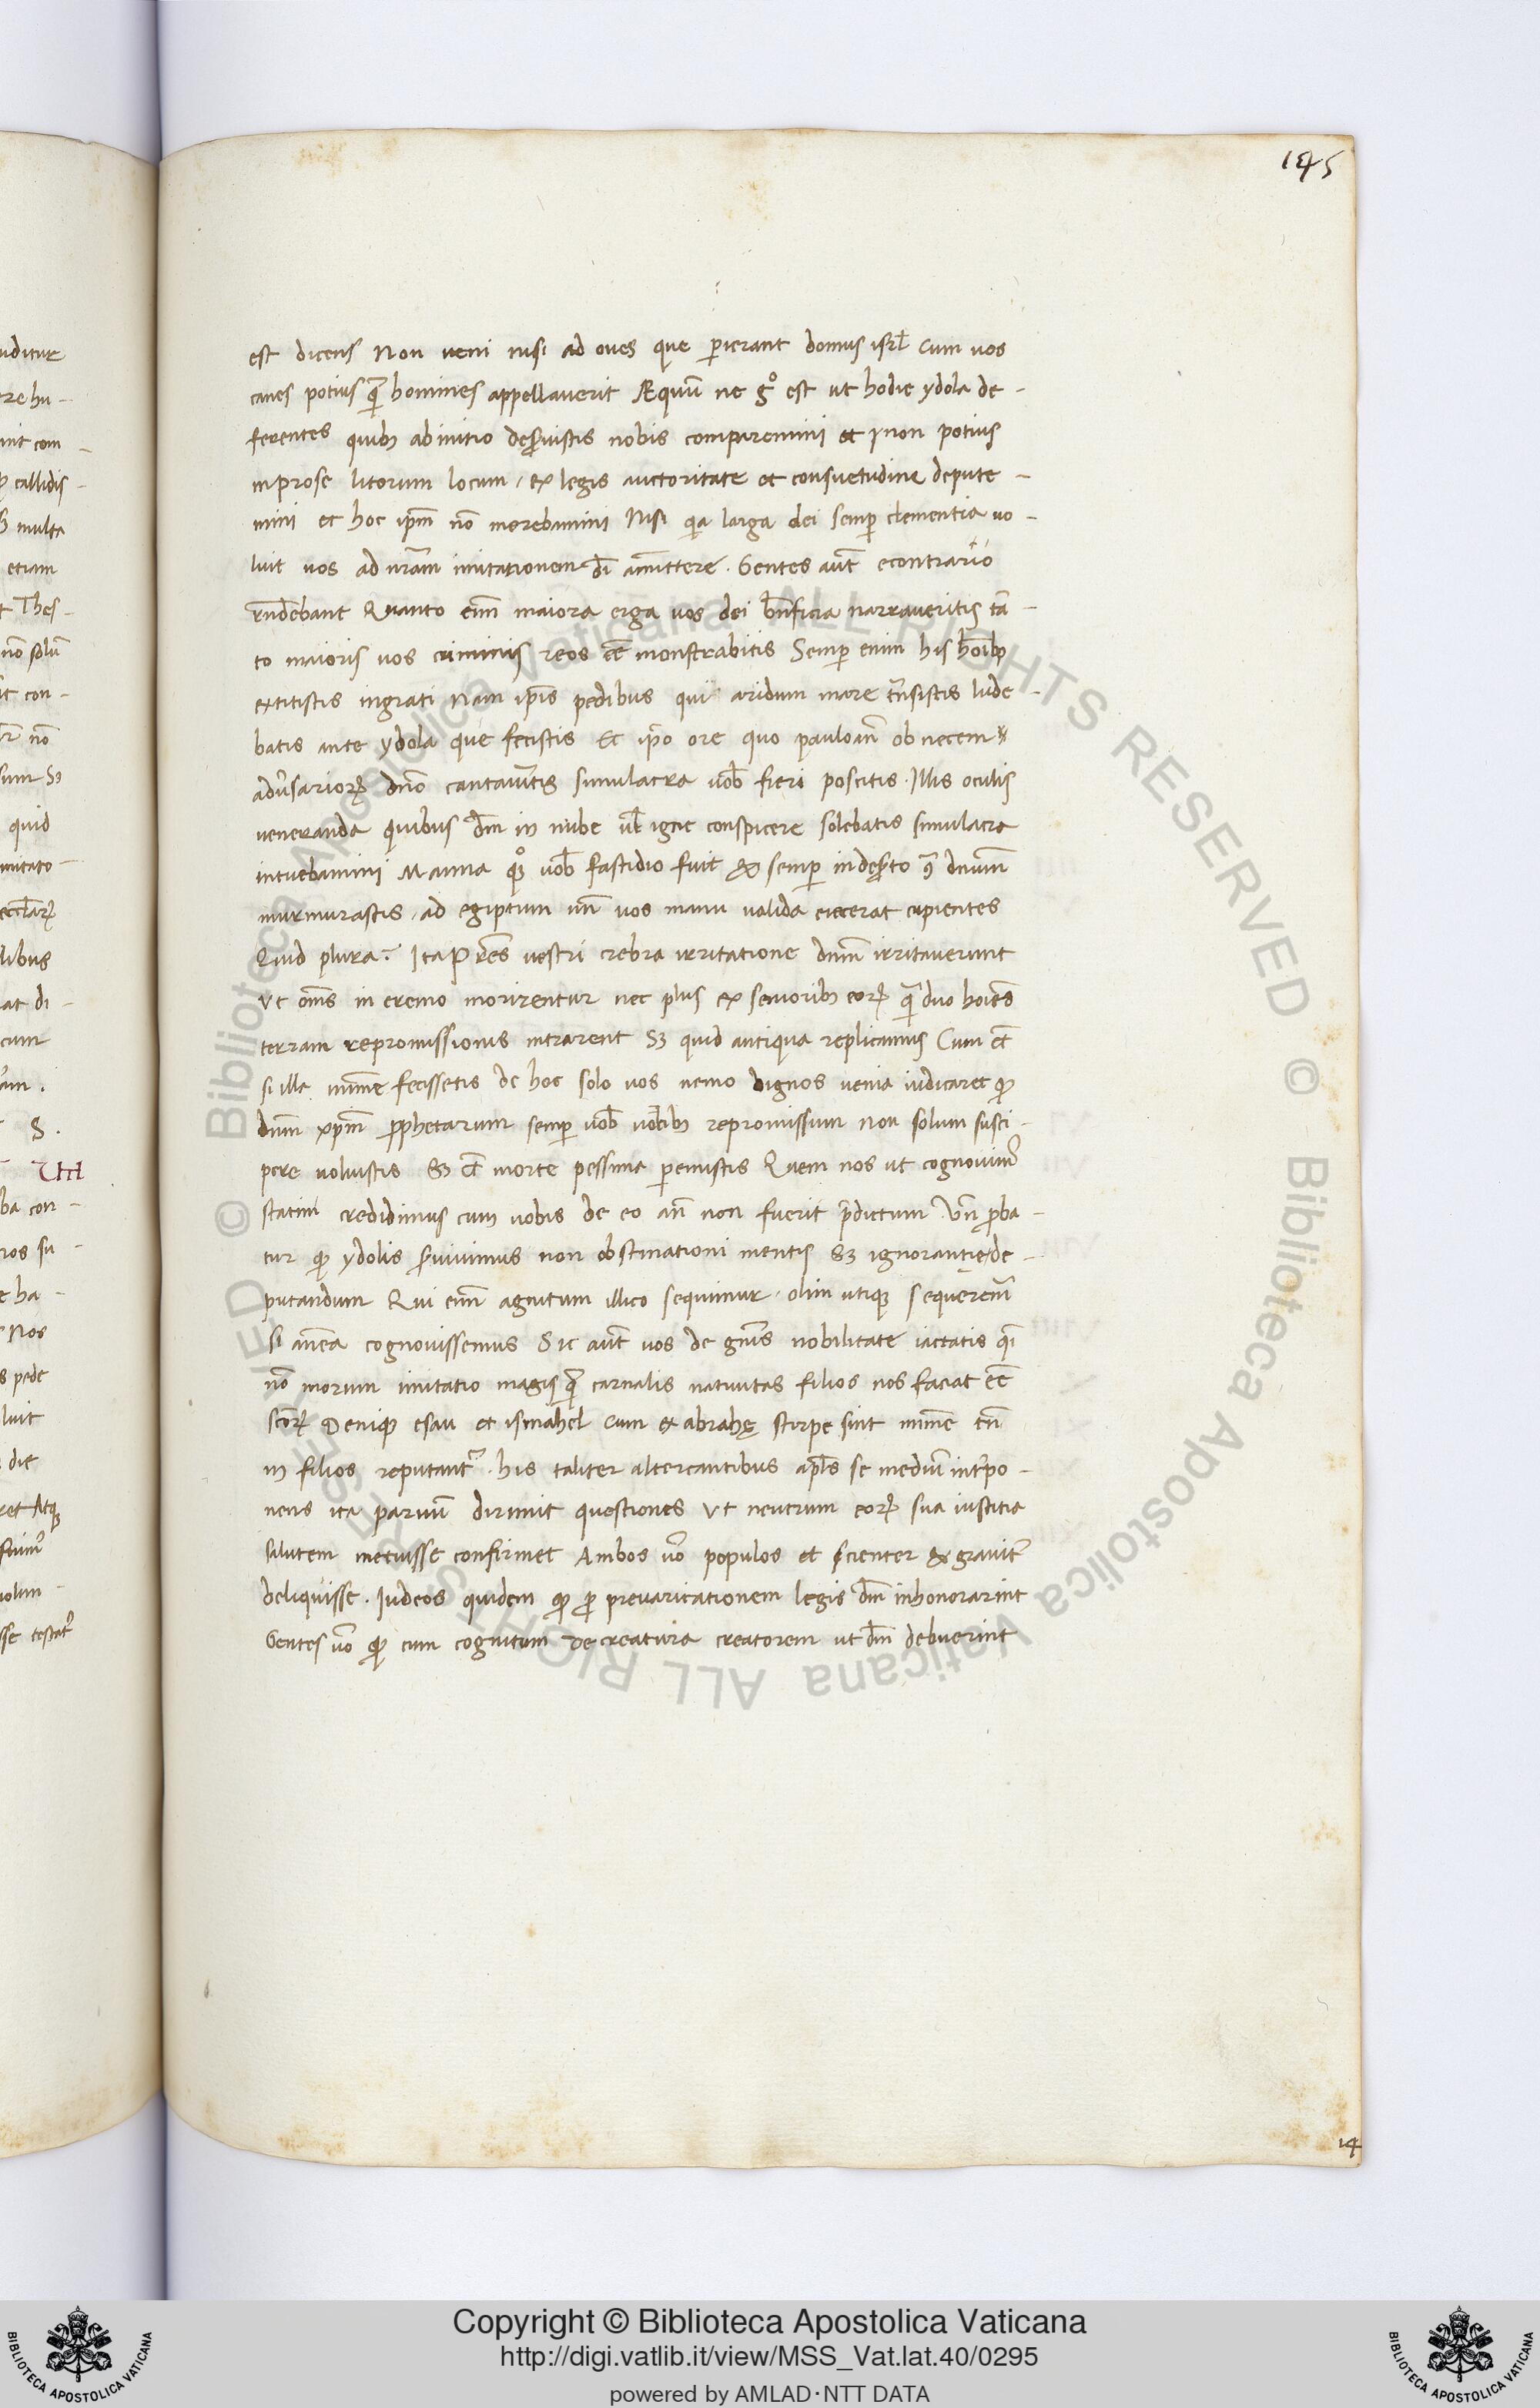 145
est dicens Non veni nisi ad oues que perierant domus isrl̃ Cum uos
canes potius q̃ homines appellauerit Æquũ ne gº est ut hodie ydola de-
ferentes quibꝫ ab initio deseruistis nobis comparemini et non potius
in prose litorum locum, ex legis auctoritate et consuetudine depute-
mini et hoc ip̃m nõ merebamini Nisi qia larga dei semp̲ clementia uo-
luit uos ad nr̃am imitationem admittere. Gentes aut̃ econtrario
rñdebant Quanto eĩm maiora erga uos dei bñficia narraueritis tã-
to maioris uos criminis reos ẽe monstrabitis Semp̲ enim his
extitistis ingrati Nam ip̃is pedibus qui aridum mare trãnsistis lude-
batis ante ydola que fecistis Et ip̃o ore quo pauloañ ob necem
aduersarioꝝ dño cantauitis simulacra uob̃ fieri poscitis. Illis oculis
veneranda quibus dm̃ in nube ul̃ igne conspicere solebatis simulacra
intuebamini Manna qꝫº uob̃ fastidio fuit & semp̲ in deserto dnum̃
murmurastis, ad egiptum uñ uos manu valida eiecerat cupientes
Quid plura? Ita pr̃es vestri crebra irritatione dnm̃ irritauerunt
Vt oms̃ in eremo morirentur nec plus ex senioribꝫ eoꝝ q̃ duo hoĩes
terram repromissionis intrarent Sꝫ quid antiqua replicamus Cum et̃
si illa minime fecissetis de hoc solo uos nemo dignos venia iudicaret ꝙ
dnm̃ xp̃m prophetarum semp̲ uob̃ uocibꝫ repromissum non solum susci-
pere voluistis Sꝫ et̃ morte pessima peremistis Quem nos ut cognouim᷒
statim credidimus cum nobis de eo añ non fuerit p̃dictum Vñ proba-
tur ꝙ ydolis seruiuimus non obstinationi mentis Sꝫ ignorantię de-
putandum Qui eĩm agnitum illico sequimur. olim utiqꝫ sequeremur
si antea cognouissemus Sic aut̃ uos de gñis nobilitate iactatis q̃i
nõ morum imitatio magis q̃ carnalis natiuitas filios nos faciat ẽe
scõꝝ Deniqꝫ esau et ismahel cum ex abrahę stirpe sint minime tñ
in filios reputant᷒. his taliter altercantibus apl̃s se mediũ int̃po-
nens ita partium dirimit questiones Vt neutrum eoꝝ sua iustitia
salutem meruisse confirmet Ambos uõ populos et scienter & grauit̃
deliquisse. Iudeos quidem ꝙ per preuaricationem legis dm̃ inhonorarint
Gentes uõ ꝙ cum cognitum de creatura creatorem ut dm̃ debuerint
14
Copyright © Biblioteca Apostolica Vaticana
http://digi.vatlib.it/view/MSS_Vat.lat.40/0295
powered by AMLAD·NTT DATA